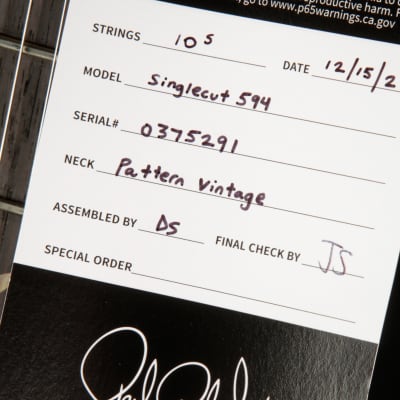 productive harm. F
go to www.p65warnings.ca.gov
STRINGS 10s DATE 12/15/2
MODEL Singlecut 594
SERIAL# 0375291
NECK Pattern Vintage
ASSEMBLED BY DS FINAL CHECK BY JS
SPECIAL ORDER